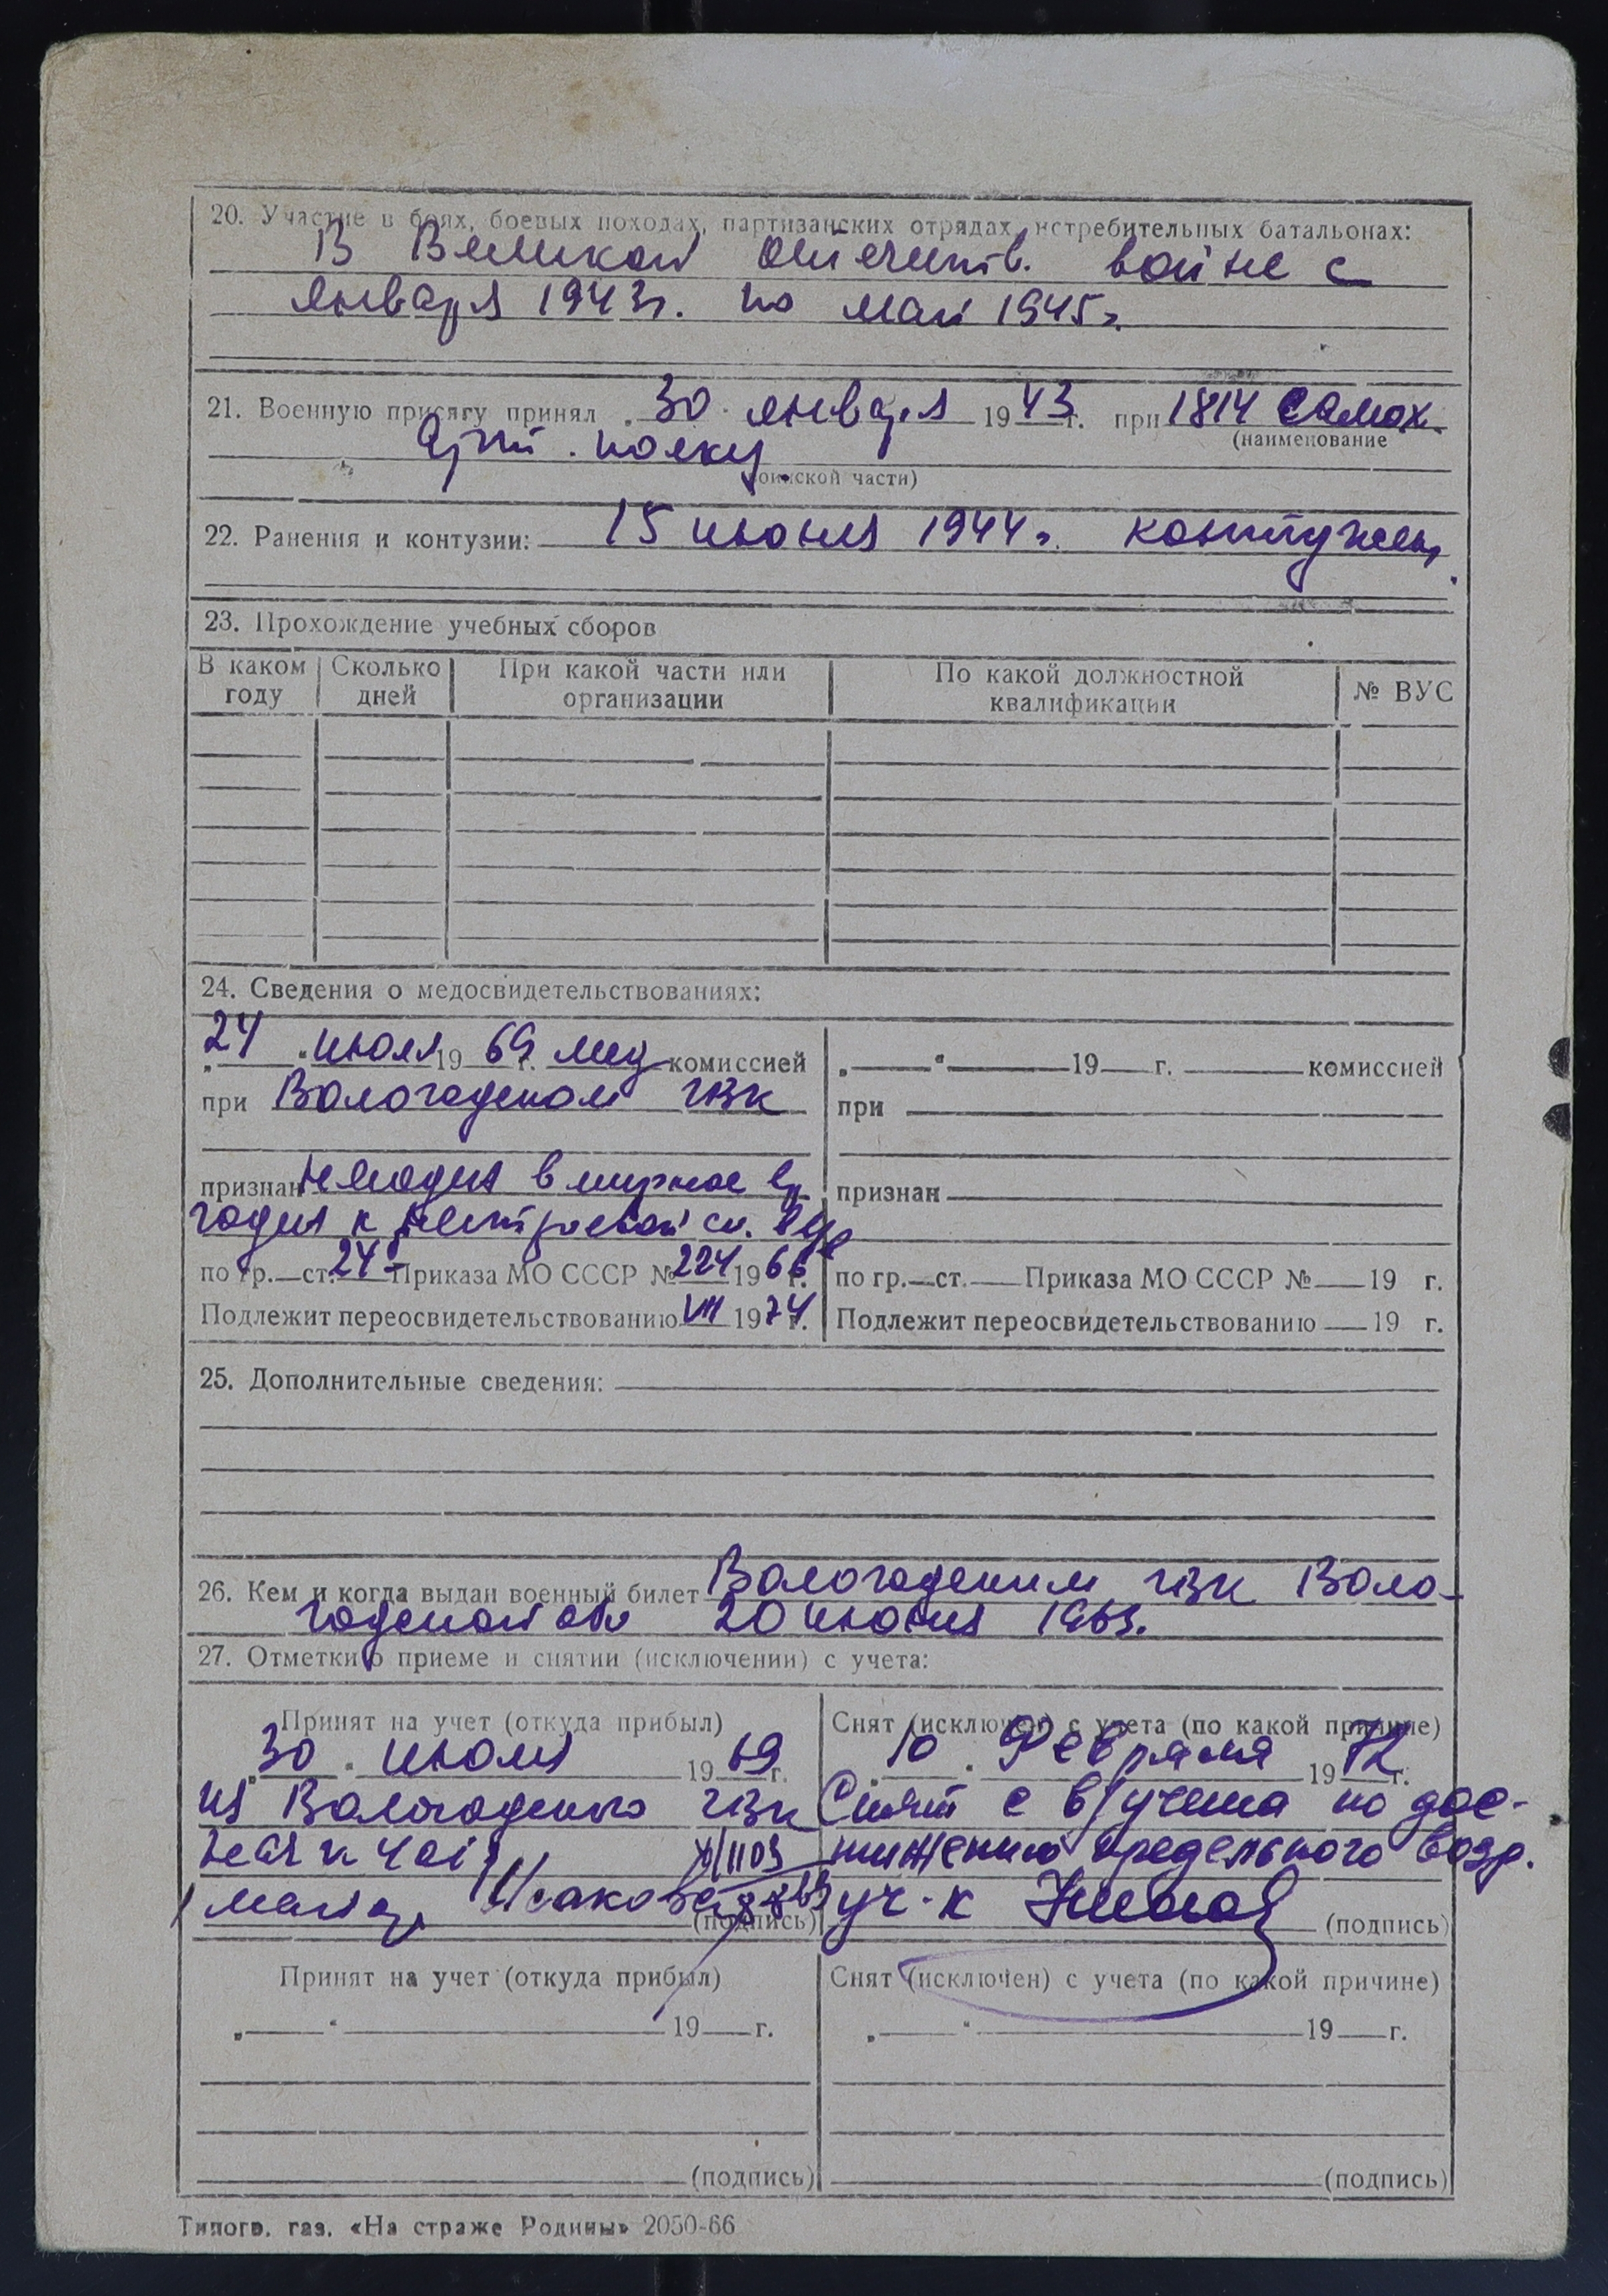 20. Участие в боях, боевых походах, партизанских отрядах, истребительных батальонах:
В Великой Отечеств. войне с
января 1943г. по май 1945г.
21. Военную присягу принял „30“ января 1943 г. при 1814 самох.
(наименование
арт. полку
воинской части)
22. Ранения и контузии: 15 июня 1944г. контужен.
23. Прохождение учебных сборов
В каком году Сколько дней При какой части или организации По какой должностной квалификации № ВУС
24. Сведения о медосвидетельствованиях:
24 „ “ июля 19 69 г. мед комиссией
при Вологодском ГВК
признан негодна в мирное вр.
годна к нестроевой сл.
по гр.—ст. 24 Приказа МО СССР № 224 1966 г.
Подлежит переосвидетельствованию VII 1974 г.
„ “ 19 г. комиссией
при
признан
по гр.—ст. Приказа МО СССР № 19 г.
Подлежит переосвидетельствованию 19 г.
25. Дополнительные сведения:
26. Кем и когда выдан военный билет Вологодским ГВК Воло-
годской обл 20 июня 1963.
27. Отметки о приеме и снятии (исключении) с учета:
Принят на учет (откуда прибыл)
„30“ июля 1969 г.
из Вологодского ГВК
Исакова
(подпись)
Снят (исключен) с учета (по какой причине)
„10“ Февраля 1972 г.
Снят с в/учета по дос-
тижению предельного возр.
(подпись)
Принят на учет (откуда прибыл)
„ “ 19 г.
(подпись)
Снят (исключен) с учета (по какой причине)
„ “ 19 г.
(подпись)
Типогр. газ. «На страже Родины» 2050-66